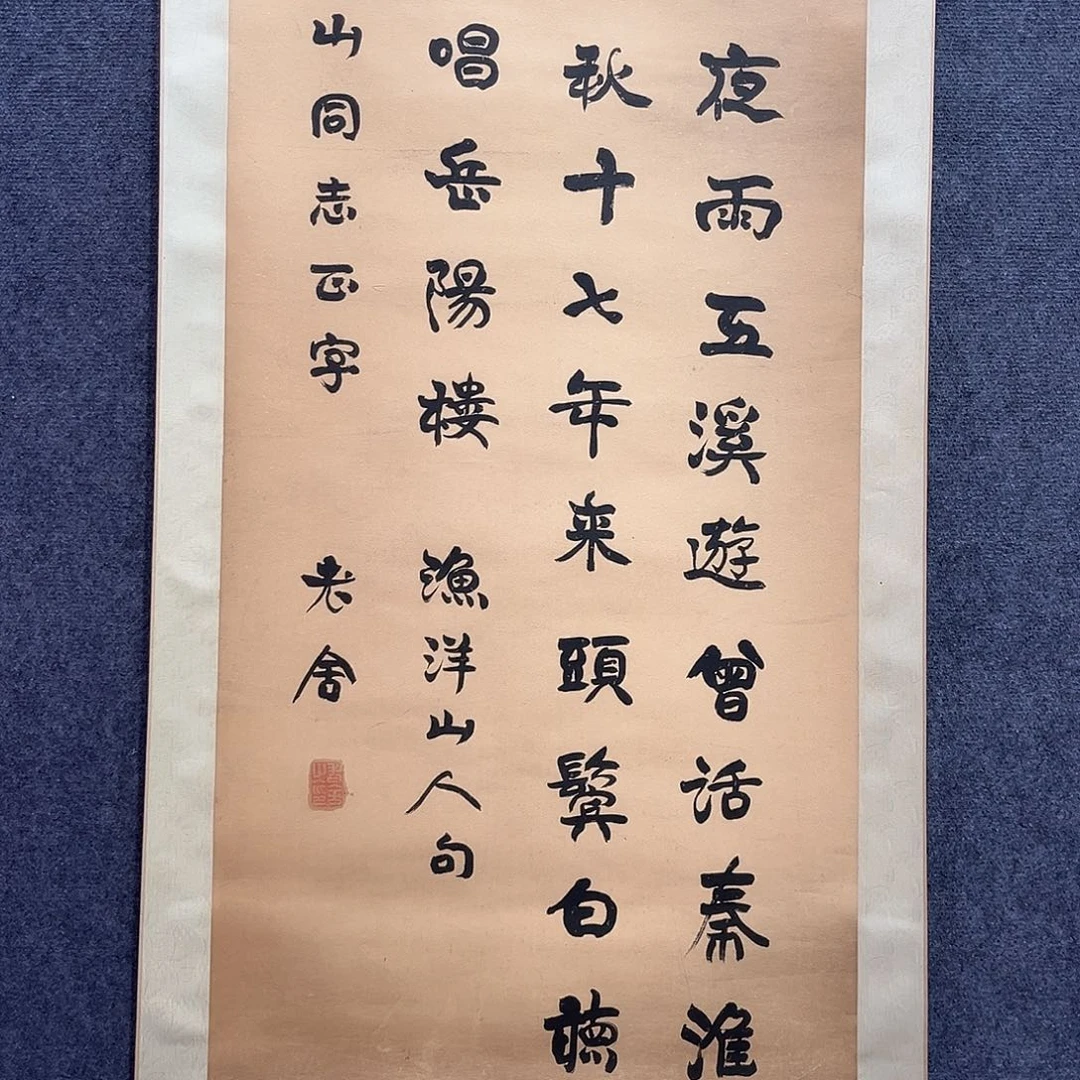 夜雨五溪遊曾話秦淮
秋十七年来頭鬓白聴
唱岳陽楼 漁洋山人句
山同志正字 老舍